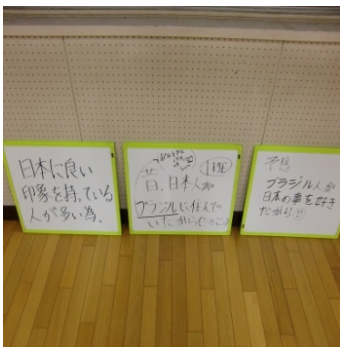 日本に良い
印象を持っている
人が多い為。
1班
昔、日本人が
ブラジルに住んで
いたから
予想
ブラジル人が
日本の事を好き
だから!!